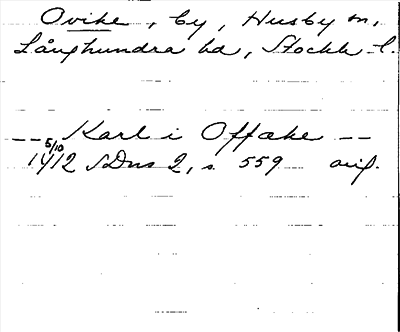 Ovike, by, Husby sn,
Långhundra hd, Stockh. l.
-- Karl i Offake --
1412 5/10 SDns 2, s. 559 orig.